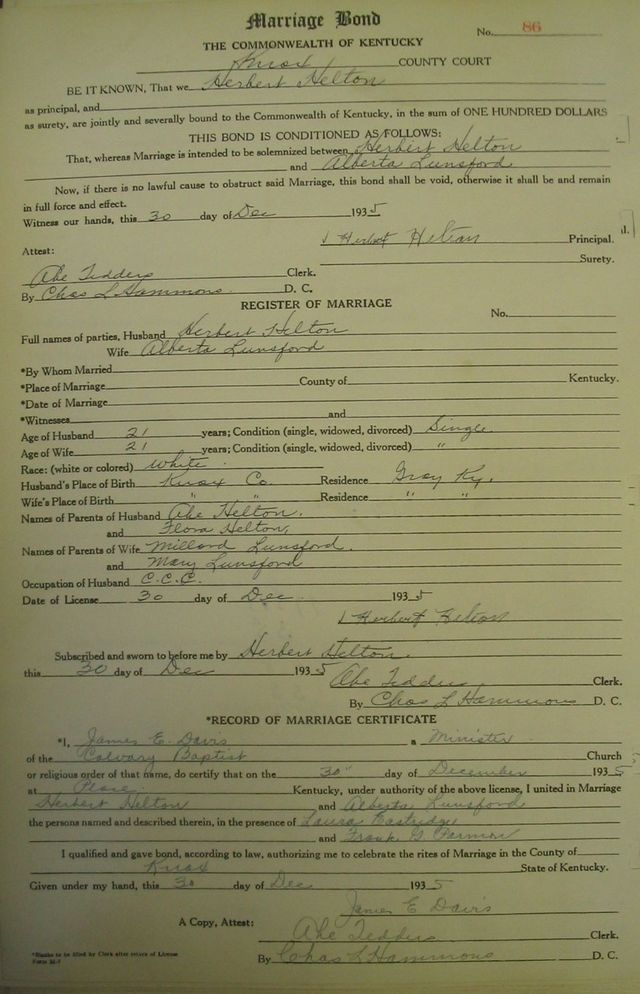 Marriage Bond
No. 86
THE COMMONWEALTH OF KENTUCKY
Knox COUNTY COURT
BE IT KNOWN, That we Herbert Helton
as principal, and
as surety, are jointly and severally bound to the Commonwealth of Kentucky, in the sum of ONE HUNDRED DOLLARS
THIS BOND IS CONDITIONED AS FOLLOWS:
That, whereas Marriage is intended to be solemnized between Herbert Helton
and Alberta Lunsford
Now, if there is no lawful cause to obstruct said Marriage, this bond shall be void, otherwise it shall be and remain
in full force and effect.
Witness our hands, this 30 day of Dec 1935
Herbert Helton Principal.
Surety.
Attest:
Abe Tedders Clerk.
By Chas L Hammons D. C.
REGISTER OF MARRIAGE
No.
Full names of parties, Husband Herbert Helton
Wife Alberta Lunsford
*By Whom Married
*Place of Marriage County of Kentucky.
*Date of Marriage
*Witnesses and
Age of Husband 21 years; Condition (single, widowed, divorced) Single
Age of Wife 21 years; Condition (single, widowed, divorced) "
Race: (white or colored) White
Husband's Place of Birth Knox Co. Residence Gray Ky.
Wife's Place of Birth " " Residence " "
Names of Parents of Husband Abe Helton.
and Flora Helton.
Names of Parents of Wife Millard Lunsford.
and Mary Lunsford
Occupation of Husband C.C.C.
Date of License 30 day of Dec 1935
Herbert Helton
Subscribed and sworn to before me by Herbert Helton.
this 30 day of Dec 1935
Abe Tedders Clerk.
By Chas L Hammons D. C.
*RECORD OF MARRIAGE CERTIFICATE
*I, James E. Davis a Minister
of the Calvary Baptist Church
or religious order of that name, do certify that on the 30" day of December 1935
at Kentucky, under authority of the above license, I united in Marriage
Herbert Helton and Alberta Lunsford
the persons named and described therein, in the presence of Laura Eastridge
and Frank G.
I qualified and gave bond, according to law, authorizing me to celebrate the rites of Marriage in the County of
Knox State of Kentucky.
Given under my hand, this 30 day of Dec 1935
James E Davis
A Copy, Attest:
Abe Tedders Clerk.
By Chas L Hammons D. C.
*Blanks to be filled by Clerk after return of License